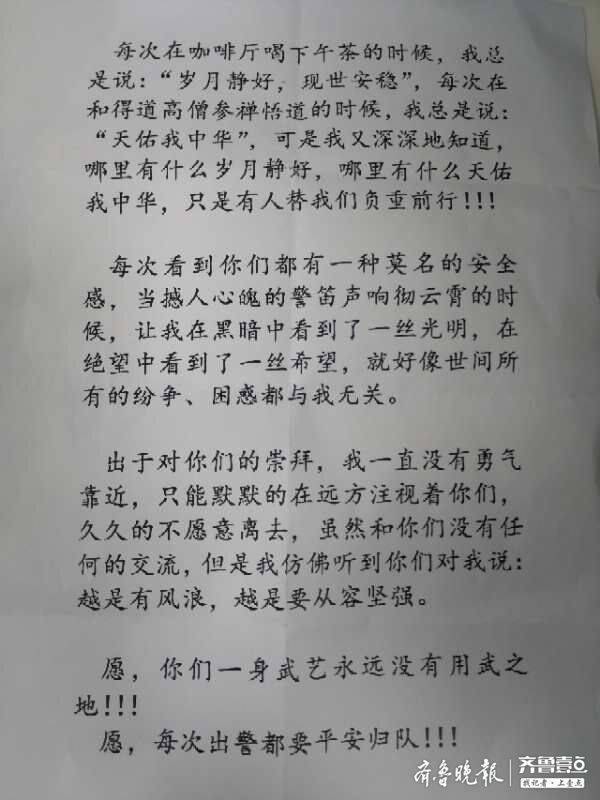 每次在咖啡厅喝下午茶的时候，我总
是说：“岁月静好，现世安稳”，每次在
和得道高僧参禅悟道的时候，我总是说：
“天佑我中华”，可是我又深深地知道，
哪里有什么岁月静好，哪里有什么天佑
我中华，只是有人替我们负重前行!!!
每次看到你们都有一种莫名的安全
感，当撼人心魄的警笛声响彻云霄的时
候，让我在黑暗中看到了一丝光明，在
绝望中看到了一丝希望，就好像世间所
有的纷争、困惑都与我无关。
出于对你们的崇拜，我一直没有勇气
靠近，只能默默的在远方注视着你们，
久久的不愿意离去，虽然和你们没有任
何的交流，但是我仿佛听到你们对我说：
越是有风浪，越是要从容坚强。
愿，你们一身武艺永远没有用武之
地!!!
愿，每次出警都要平安归队!!!
齐鲁晚报 齐鲁壹点
找记者·上壹点